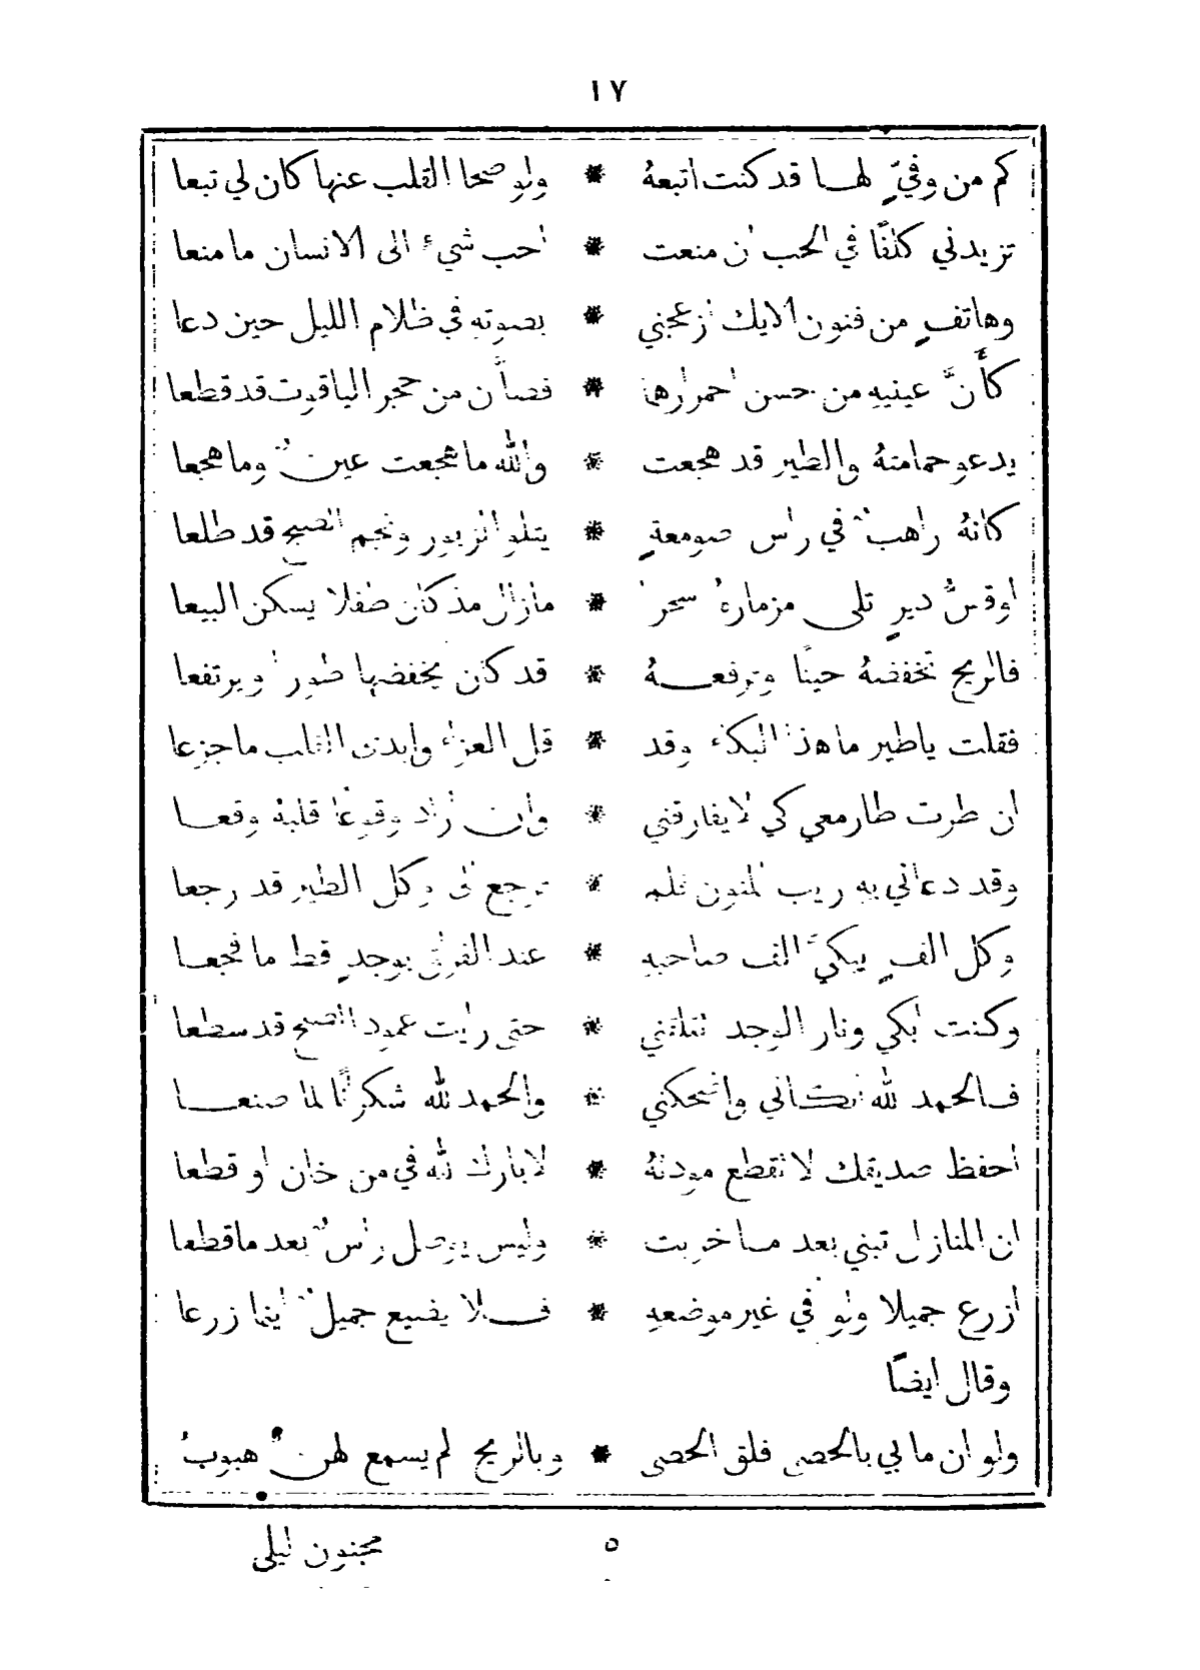 ١٧
كم من وفيٍّ لهـا قد كنت اتبعهُ * ولو صحا القلب عنها كان لي تبعا
تزيدني كلفًا في الحب ان منعت * احب شيء الى الانسان ما منعا
وهاتفٍ من فنون الايك ازعجني * بصوتهِ في ظلام الليل حين دعا
كأنَّ عينيهِ من حسن احمرارها * فصان من حجر الياقوت قد قطعا
يدعو حمامتهُ والطير قد هجعت * والله ما هجعت عينٌ وما هجعا
كانهُ راهبٌ في راس صومعةٍ * يتلو الزبور ونجم الصبح قد طلعا
اوقسُّ ديرٍ تلى مزمارهُ سحرا * مازال مذ كان طفلا يسكن البيعا
فالريح تخفضهُ حينًا وترفعـهُ * قد كان يخفضها طورا ويرتفعا
فقلت ياطير ما هذا البكاء وقد * قل العزاء وابدى القلب ما جزعا
ان طرت طار معي كي لايفارقني * وان اراد وقوعًا قلبهُ وقعـا
وقد دعاني به ريب المنون فلم * يرجع الي وكل الطير قد رجعا
وكل الفٍ يبكي الف صاحبهِ * عند الفراق بوجدٍ قط ما فجعـا
وكنت ابكي ونار الوجد تقلقني * حتى رايت عمود الصبح قد سطعا
فـالحمد لله ابكـاني واضحكني * والحمد لله شكرًا لما صنعـا
احفظ صديقك لا تقطع مودتهُ * لابارك الله في من خان او قطعا
ان المنازل تبني بعد مـا خربت * وليس يوصل راسٌ بعد ما قطعا
ازرع جميلا ولو في غير موضعهِ * فـلا يضيع جميلٌ اينما زرعا
وقال ايضًا
ولو ان ما بي بالحصى فلق الحصى * وبالريح لم يسمع لهنَّ هبوبُ
٥
مجنون ليلى